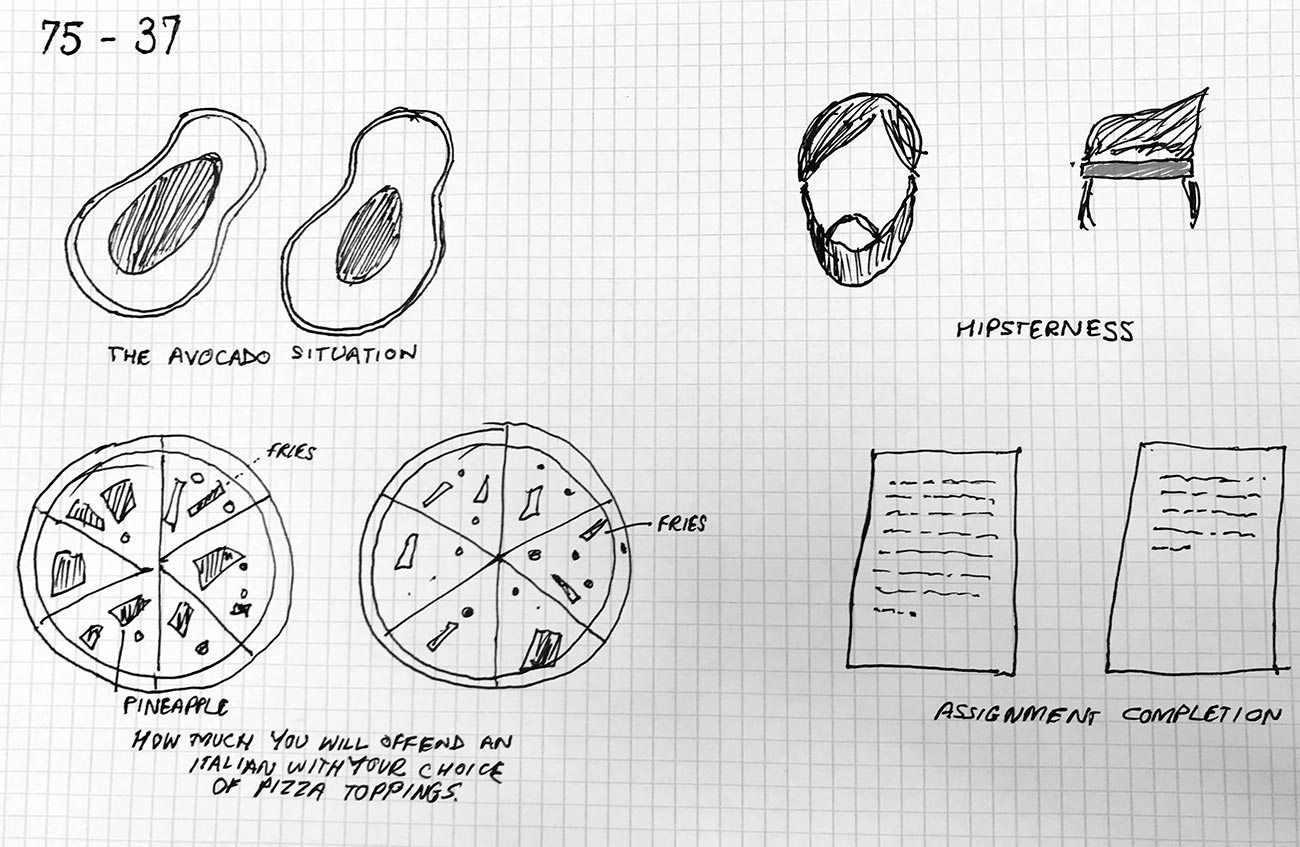 75 - 37
THE AVOCADO SITUATION
HIPSTERNESS
FRIES
FRIES
PINEAPPLE
HOW MUCH YOU WILL OFFEND AN
ITALIAN WITH YOUR CHOICE
OF PIZZA TOPPINGS.
ASSIGNMENT COMPLETION